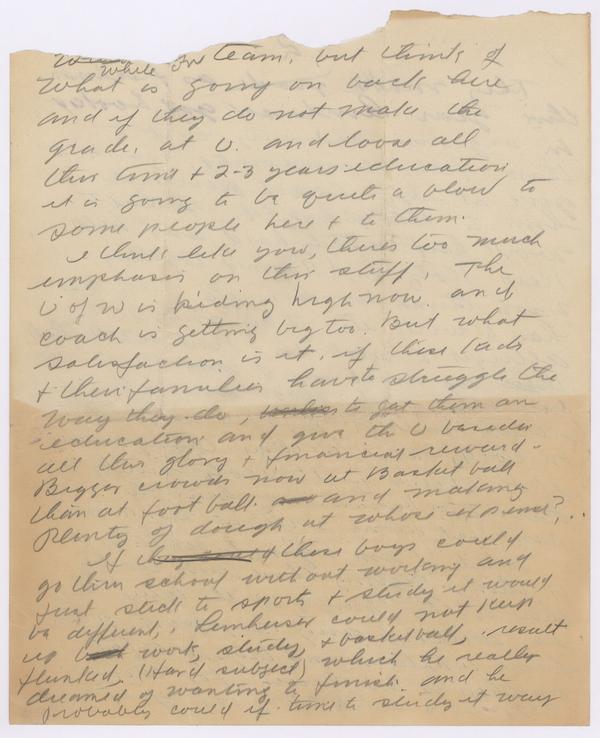 While for team, but think of
What is going on back here
and if they do not make the
grade, at U. and loose all
this time + 2-3 years education
it is going to be quite a blow to
some people here + to them.
I think like you, there's too much
emphasis on this stuff. The
U of W is riding high now and
coach is getting big too. But what
satisfaction is it, if these lads
+ their families have to struggle the
way they do, to get them an
education and give the U besides
all this glory + financial reward -
Bigger crowds now at Basket ball
than at foot ball and making
plenty of dough at whose expense? . .
If these boys could
go thru school without working and
just stick to sports + study it would
be different. could not keep
up work, study, + basketball, result
flunked. (Hard subject) which he really
dreamed of wanting to finish and he
probably could if time to study it way